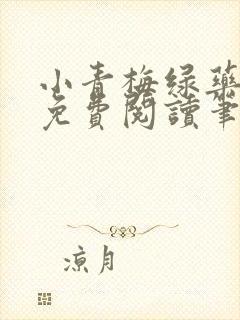 小青梅绿药
免費閱讀筆
凉月